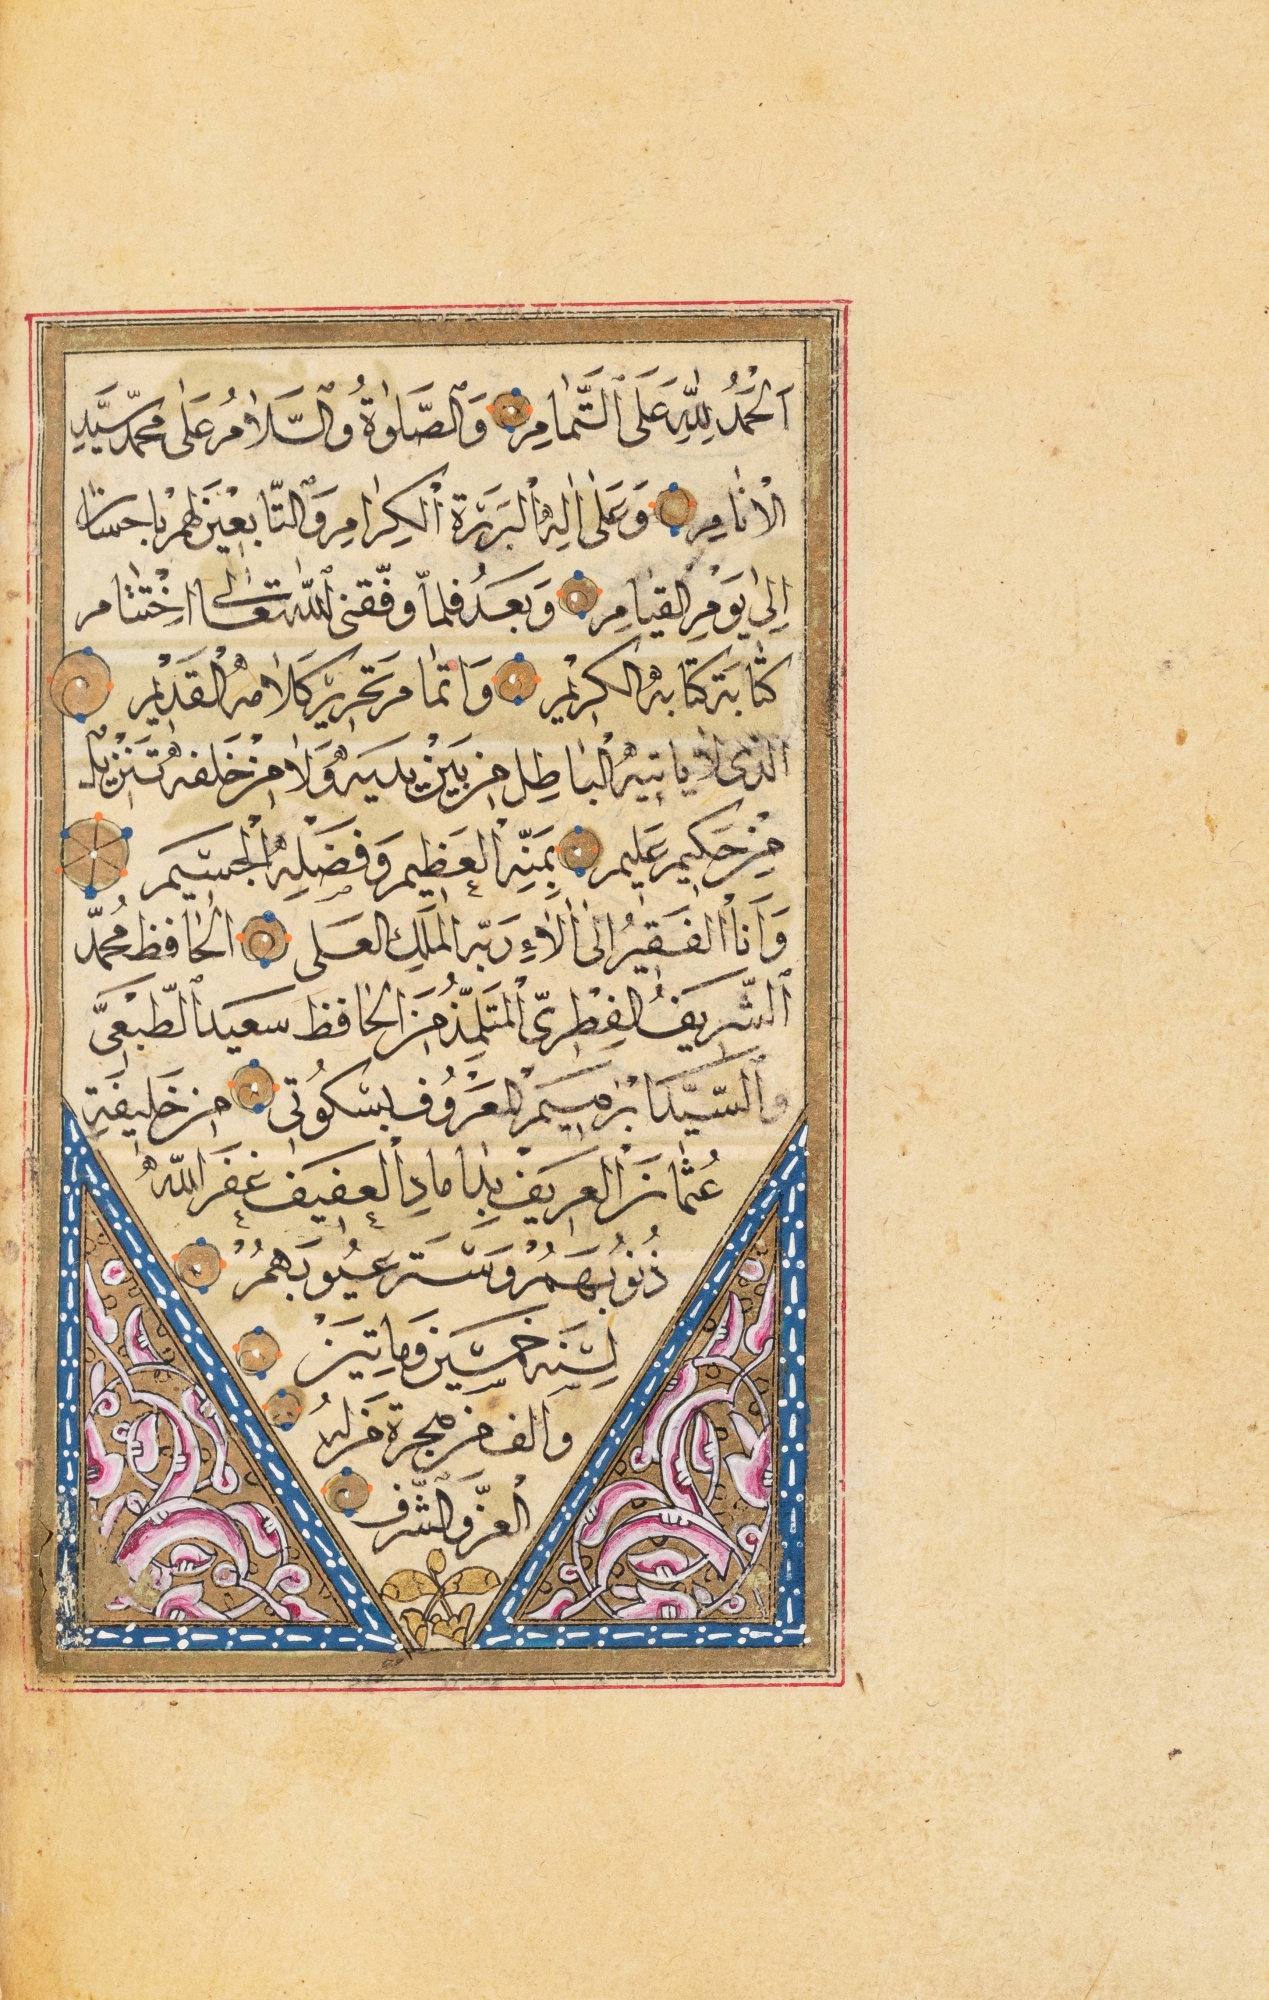 اَلْحَمْدُ لِلّٰهِ عَلَى ٱلتَّمَامِ وَٱلصَّلَوٰةُ وَٱلسَّلَامُ عَلٰى مُحَمَّدٍ سَيِّدِ
الْاَنَامِ وَعَلٰى اٰلِهِ الْبَرَرَةِ الْكِرَامِ وَالتَّابِعِينَ لَهُمْ بِاِحْسَانٍ
اِلٰى يَوْمِ الْقِيَامِ وَبَعْدُ فَلَمَّا وَفَّقَنِى اللّٰهُ تَعَالٰى اخْتِتَامَ
كِتَابَةِ كِتَابِهِ الْكَرِيْمِ وَاِتْمَامَ تَحْرِيْرِ كَلَامِهِ الْقَدِيْمِ
الَّذِى لَا يَاْتِيهِ الْبَاطِلُ مِنْ بَيْنِ يَدَيْهِ وَلَا مِنْ خَلْفِهِ تَنْزِيلٌ
مِنْ حَكِيمٍ عَلِيمٍ بِمَنِّهِ الْعَظِيمِ وَفَضْلِهِ الْجَسِيمِ
وَاَنَا الْفَقِيرُ اِلٰى اٰلَاءِ رَبِّهِ الْمَلِكِ الْعَلِى الْحَافِظ مُحَمَّد
الشَّرِيفُ الْفِطْرِىّ الْمُتَلَمِّذُ مِنَ الْحَافِظ سَعِيد الطَّبْعِى
وَالسَّيِّد اِبْرٰهِيمَ الْمَعْرُوف بِسُكُوتِى مِنْ خَلِيفَةِ
عُثْمَانَ الْعَرِيف بِدَامَادِ الْعَفِيف غَفَرَ اللّٰهُ
ذُنُوبَهُمْ وَسَتَرَ عُيُوبَهُمْ
لِسَنَةِ خَمْسِينَ وَمِاَتَيْنِ
وَالْف مِنْ هِجْرَةِ مَنْ لَهُ
الْعِزُّ وَالشَّرَف